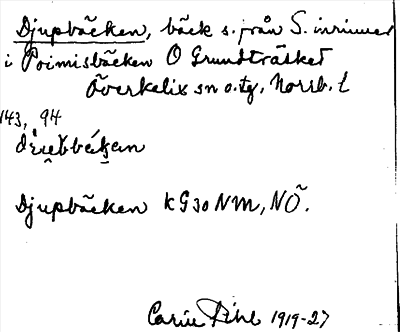 Djupbäcken, bäck s. från S. inrinner
i Poimisbäcken O Grundträsket
Överkelix sn o. tg, Norrb. l
143, 94
Djupbäcken KG30 NM, NÖ.
Carin Pihl 1919-27